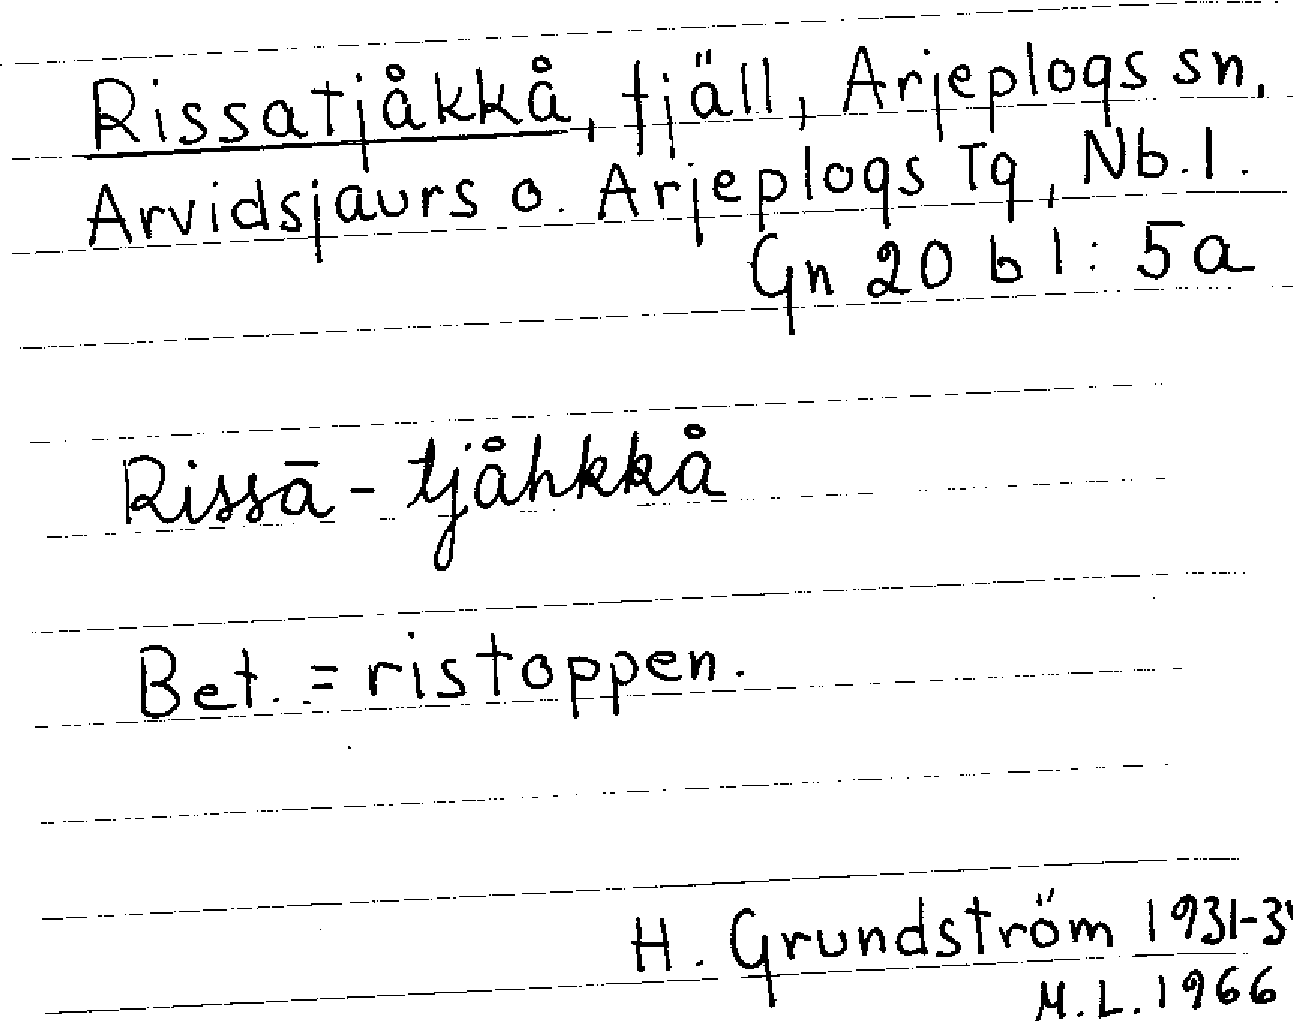 Rissatjåkkå, fjäll, Arjeplogs sn,
Arvidsjaurs o. Arjeplogs Tg, Nb.l.
Gn 20 b l: 5a
Rissā-tjåhkkå
Bet. = ristoppen.
H. Grundström 1931-3
M.L. 1966